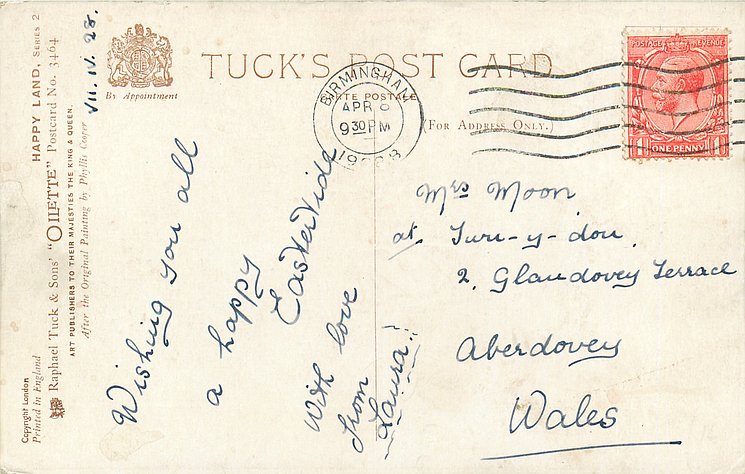 TUCK'S POST CARD
By Appointment
CARTE POSTALE
(For Address Only.)
BIRMINGHAM
APR 8
9 30 PM
1928
POSTAGE REVENUE
ONE PENNY
HAPPY LAND, SERIES 2
Raphael Tuck & Sons' "OILETTE" Postcard No. 3464
ART PUBLISHERS TO THEIR MAJESTIES THE KING & QUEEN.
After the Original Painting by Phyllis Cooper
Copyright London
Printed in England
VII. IV. 28.
Wishing you all
a happy
Eastertide
With love
from
Laura
Mrs Moon
at
2, Glandovey Terrace
Aberdovey
Wales